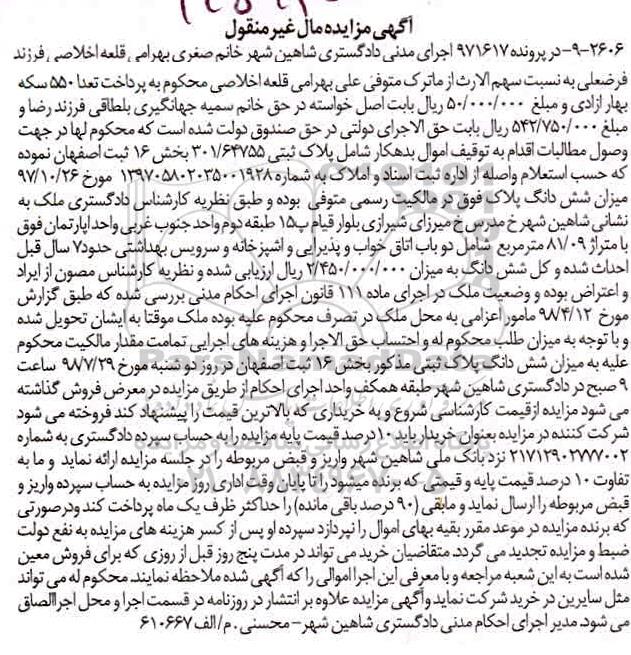 آگهی مزایده مال غیر منقول
۲۶۰۶-۹- در پرونده ۹۷۱۶۱۷ اجرای مدنی دادگستری شاهین شهر خانم صغری بهرامی قلعه اخلاصی فرزند
فرضعلی به نسبت سهم الارث از ماترک متوفی علی بهرامی قلعه اخلاصی محکوم به پرداخت تعدا ۵۵۰ سکه
بهار ازادی و مبلغ ۵۰/۰۰۰/۰۰۰ ریال بابت اصل خواسته در حق خانم سمیه جهانگیری بلطاقی فرزند رضا و
مبلغ ۵۴۲/۷۵۰/۰۰۰ ریال بابت حق الاجرای دولتی در حق صندوق دولت شده است که محکوم لها در جهت
وصول مطالبات اقدام به توقیف اموال بدهکار شامل پلاک ثبتی ۳۰۱/۶۴۷۵۵ بخش ۱۶ ثبت اصفهان نموده
که حسب استعلام واصله از اداره ثبت اسناد و املاک به شماره ۱۳۹۷۰۵۸۰۲۰۳۵۰۰۱۹۲۸ مورخ ۹۷/۱۰/۲۶
میزان شش دانگ پلاک فوق در مالکیت رسمی متوفی بوده و طبق نظریه کارشناس دادگستری ملک به
نشانی شاهین شهر خ مدرس خ میرزای شیرازی بلوار قیام پ۱۵ طبقه دوم واحد جنوب غربی واحد اپارتمان فوق
با متراژ ۸۱/۰۹ مترمربع شامل دو باب اتاق خواب و پذیرایی و اشپزخانه و سرویس بهداشتی حدود ۷ سال قبل
احداث شده و کل شش دانگ به میزان ۲/۴۵۰/۰۰۰/۰۰۰ ریال ارزیابی شده و نظریه کارشناس مصون از ایراد
و اعتراض بوده و وضعیت ملک در اجرای ماده ۱۱۱ قانون اجرای احکام مدنی بررسی شده که طبق گزارش
مورخ ۹۸/۴/۱۲ مامور اعزامی به محل ملک در تصرف محکوم علیه بوده ملک موقتا به ایشان تحویل شده
و با توجه به میزان طلب محکوم له و احتساب حق الاجرا و هزینه های اجرایی تمامت مقدار مالکیت محکوم
علیه به میزان شش دانگ پلاک ثبتی مذکور بخش ۱۶ ثبت اصفهان در روز دو شنبه مورخ ۹۸/۷/۲۹ ساعت
۹ صبح در دادگستری شاهین شهر طبقه همکف واحد اجرای احکام از طریق مزایده در معرض فروش گذاشته
می شود مزایده از قیمت کارشناسی شروع و به خریداری که بالاترین قیمت را پیشنهاد کند فروخته می شود
شرکت کننده در مزایده بعنوان خریدار باید ۱۰ درصد قیمت پایه مزایده را به حساب سپرده دادگستری به شماره
۲۱۷۱۲۹۰۲۷۷۷۰۰۲ نزد بانک ملی شاهین شهر واریز و قبض مربوطه را در جلسه مزایده ارائه نماید و ما به
تفاوت ۱۰ درصد قیمت پایه و قیمتی که برنده میشود را تا پایان وقت اداری روز مزایده به حساب سپرده واریز و
قبض مربوطه را ارسال نماید و مابقی (۹۰ درصد باقی مانده) را حداکثر ظرف یک ماه پرداخت کند ودرصورتی
که برنده مزایده در موعد مقرر بقیه بهای اموال را نپردازد سپرده او پس از کسر هزینه های مزایده به نفع دولت
ضبط و مزایده تجدید می گردد. متقاضیان خرید می تواند در مدت پنج روز قبل از روزی که برای فروش معین
شده است به این شعبه مراجعه و با معرفی این اجرا اموالی را که آگهی شده ملاحظه نمایند. محکوم له می تواند
مثل سایرین در خرید شرکت نماید وآگهی مزایده علاوه بر انتشار در روزنامه در قسمت اجرا و محل اجرا الصاق
می شود. مدیر اجرای احکام مدنی دادگستری شاهین شهر - محسنی. م/الف ۶۱۰۶۶۷